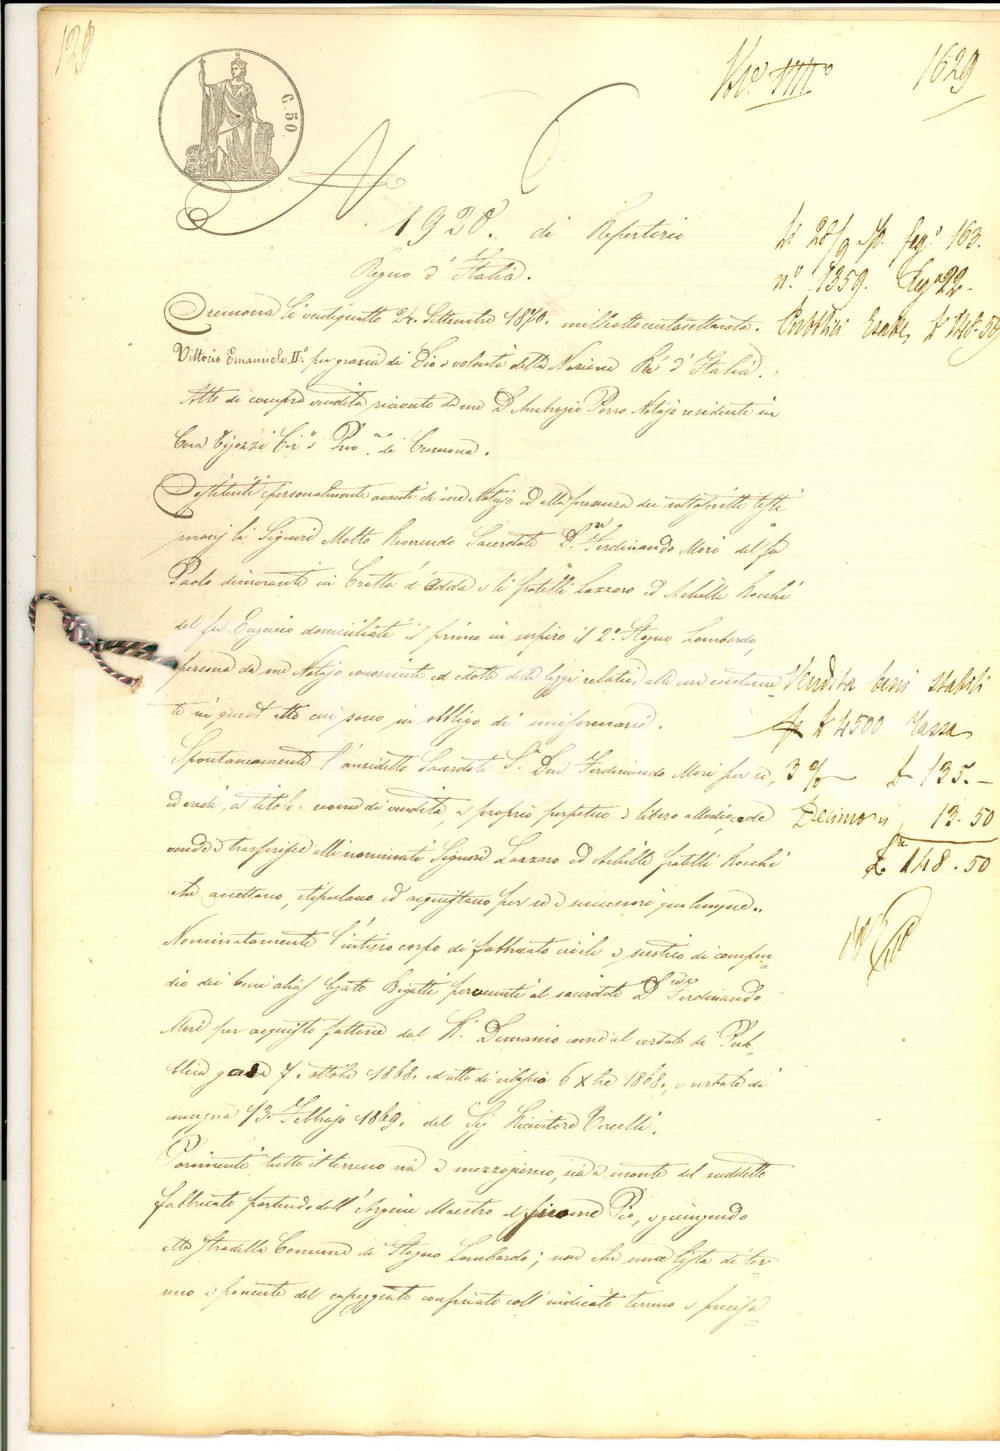 139
N.º VIII.º 1629
C. 50.
N.
1920. di Repertorio
Regno d'Italia.
Cremona li ventiquattro 24. Settembre 1870. milleottocentosettanta.
Vittorio Emanuele II.º per grazia di Dio e volontà della Nazione Rè d'Italia.
Atto di compra vendita ricevuto da me D. Ambrogio Porro Notajo residente in
Cir.º e Prov. di Cremona.
Costituiti personalmente avanti di me Notajo ed alla presenza dei sottoscritti testi
monj li Signori Molto Reverendo Sacerdote D.n Ferdinando Mori del fu
Paolo dimorante in Crotta d'Adda e li fratelli Lazzaro ed Achille Rocchi
del fu Eugenio domiciliati il primo in il 2.º Stagno Lombardo,
persone da me Notajo conosciute ed edotte delle leggi relative alle
te in quest'atto cui sono in obbligo di uniformarsi.
Spontaneamente l'anzidetto Sacerdote S.r Don Ferdinando Mori per se,
ed eredi, a titolo e nome di vendita, e proprio, perpetuo e libero allodio, cede
vende e trasferisce alli nominati Signori Lazzaro ed Achille fratelli Rocchi
che accettano, stipulano ed acquistano per se e successori qualunque.
Nominatamente l'intiero corpo di fabbricato civile e rustico di compen-
dio dei beni alias Legato Bigatti pervenuti al sacerdote D. Ferdinando
Mori per acquisto fattone dal R.º Demanio come al verbale di Pub-
blica gara 7. ottobre 1868. ed atto di rilascio 6 Xbre 1868., e verbale di
consegna 13. Febbrajo 1869. del Sig. Ricevitore Vercelli.
Parimenti tutto il terreno sia a mezzogiorno, sia a monte del suddetto
fabbricato partendo dall'Argine Maestro del fiume Pio, e giungendo
alla stradella Comune di Stagno Lombardo; non che una lista di ter-
reno a ponente del caseggiato confinato coll'indicato terreno e precisa
=
Li 28/9 Fog.º 163.
n.º 1359. Reg.º 22-
Esatte £ 148.50
Vendita beni stabili
p £ 4500 Tassa
3 % £ 135. -
Decimo " 13.50
£ 148.50